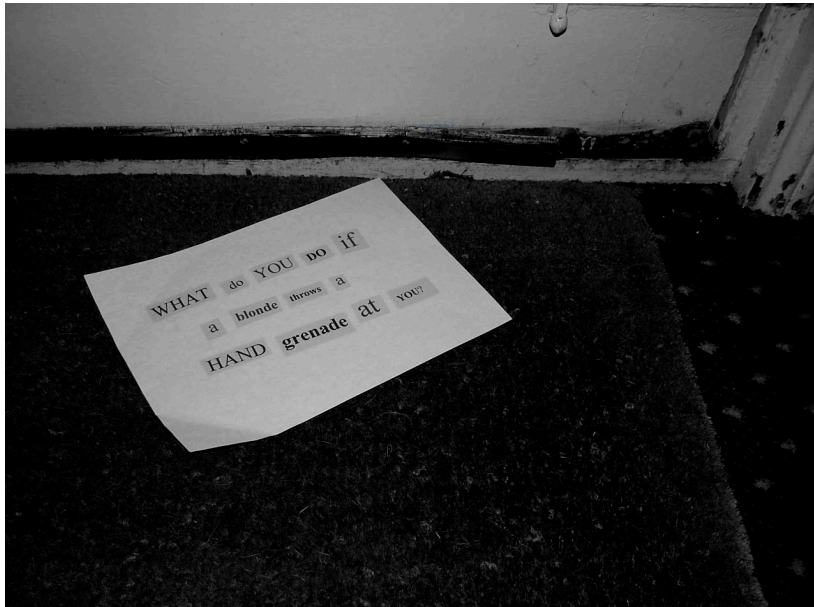 WHAT do YOU DO if
a blonde throws a
HAND grenade at YOU?